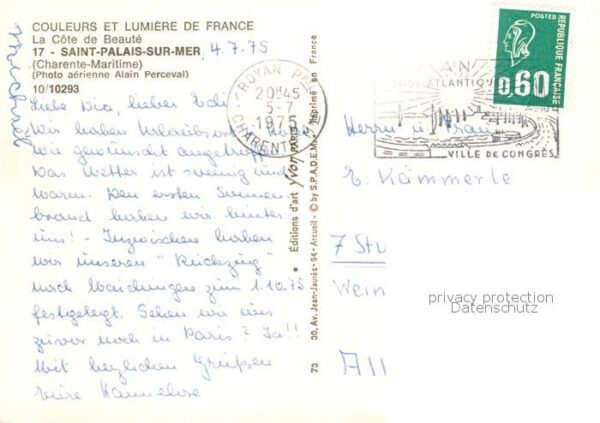 COULEURS ET LUMIÈRE DE FRANCE
La Côte de Beauté
17 - SAINT-PALAIS-SUR-MER
(Charente-Maritime)
(Photo aérienne Alain Perceval)
10/10293
4.7.75
Liebe Pia, lieber Edi
Wir haben
wie gewünscht angetroffen
Das Wetter ist sonnig und
warm. Den ersten Sonnen
brand haben wir hinter
uns! - Inzwischen haben
wir unseren "Rückzug"
nach Waiblingen zum 1.10.75
festgelegt. Sehen wir uns
zuvor noch in Paris? Ja!!
Mit herzlichen Grüßen
Eure Hannelore
Michael
Éditions d'art yvon PARIS
Imprimé en France
30, Av. Jean-Jaurès - 94 - Arcueil - © by S.P.A.D.E.M.
73
ROYAN PPAL
20H45
5-7
1975
CHARENTE
ATLANTIQUE
VILLE DE CONGRÈS
POSTES
0,60
RÉPUBLIQUE FRANÇAISE
Herrn u Frau
E. Kämmerle
7 Stu
Wein
All
privacy protection
Datenschutz